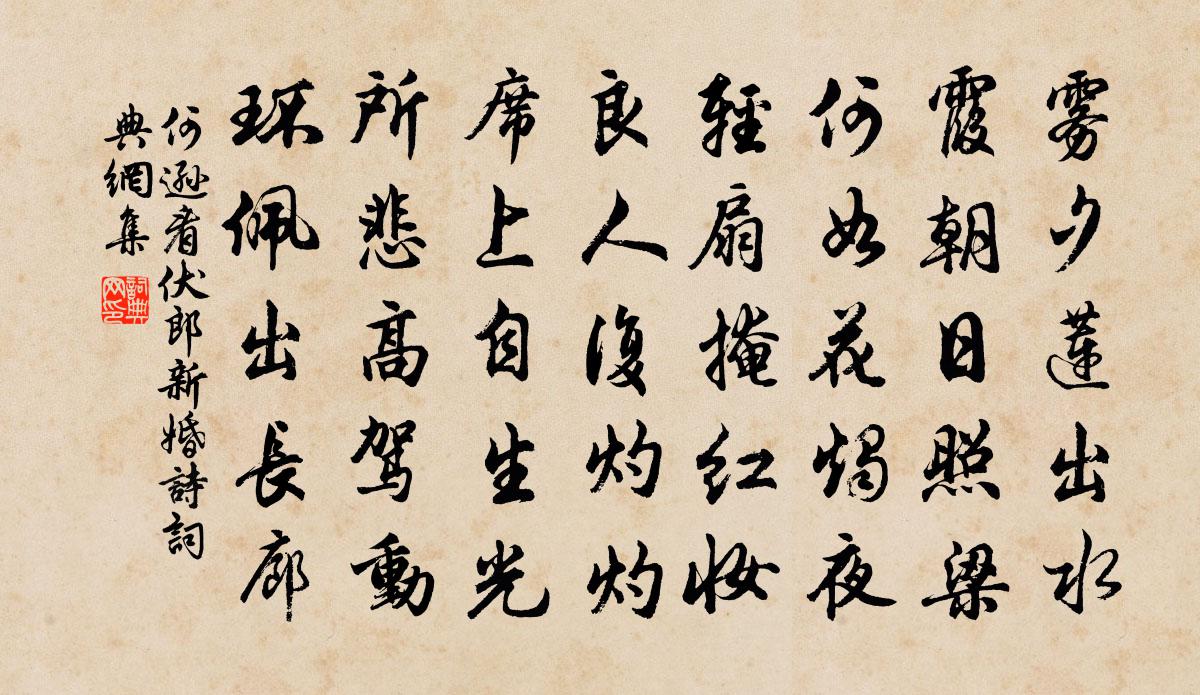 雾夕蓮出水
霞朝日照梁
何如花燭夜
輕扇掩红妝
良人復灼灼
席上自生光
所悲高駕動
环佩出長廊
何遜看伏郎新婚詩詞
典網集
詞典
网印